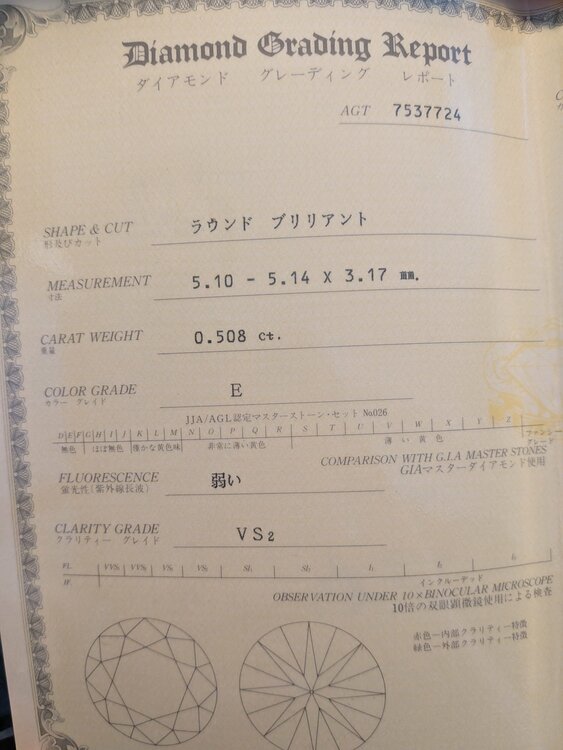 Diamond Grading Report
ダイアモンド グレーディング レポート
AGT 7537724
SHAPE & CUT ラウンド ブリリアント
形及びカット
MEASUREMENT 5.10 - 5.14 X 3.17 mm.
寸法
CARAT WEIGHT 0.508 ct.
重量
COLOR GRADE E
カラー グレイド
JJA/AGL認定マスターストーン・セット No.026
D E F G H I J K L M N O P Q R S T U V W X Y Z ファンシー
無色 ほぼ無色 僅かな黄色味 非常に薄い黄色 薄い黄色 グレード
COMPARISON WITH G.I.A MASTER STONES
GIAマスターダイアモンド使用
FLUORESCENCE 弱い
蛍光性(紫外線長波)
CLARITY GRADE VS2
クラリティー グレイド
FL VVS1 VVS2 VS1 VS2 SI1 SI2 I1 I2 I3
IF インクルーデッド
OBSERVATION UNDER 10×BINOCULAR MICROSCOPE
10倍の双眼顕微鏡使用による検査
赤色―内部クラリティー特徴
緑色―外部クラリティー特徴